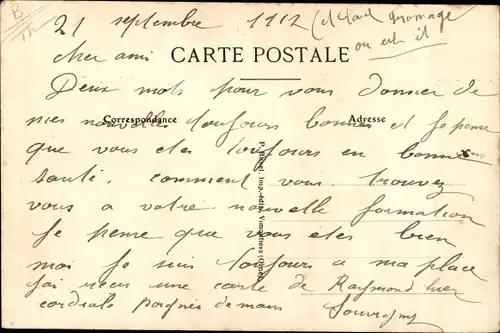 B
21 septembre 1912
fromage
ou est il
cher ami
CARTE POSTALE
Deux mots pour vous donner de
Correspondance
Adresse
mes nouvelles toujours bonnes et je pense
que vous etes toujours en bonne
santé. comment vous trouvez
vous a votre nouvelle formation
Je pense que vous etes bien
moi je suis toujours a ma place
j'ai recu une carte de Raymond hier
cordiale poignée de main